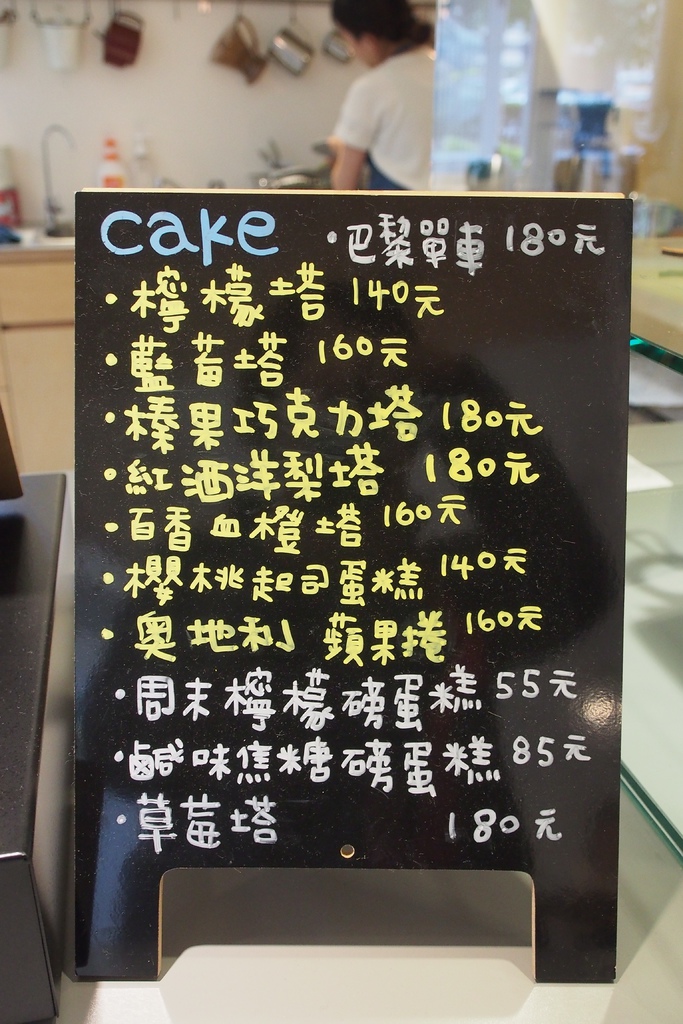 cake ·巴黎單車 180元
·檸檬塔 140元
·藍莓塔 160元
·榛果巧克力塔 180元
·紅酒洋梨塔 180元
·百香血橙塔 160元
·櫻桃起司蛋糕 140元
·奧地利 蘋果捲 160元
·周末檸檬磅蛋糕 55元
·鹹味焦糖磅蛋糕 85元
·草莓塔 180元